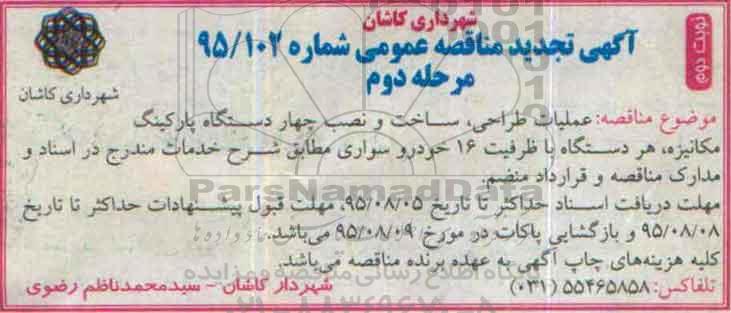 شهرداری کاشان
آگهی تجدید مناقصه عمومی شماره ۹۵/۱۰۲
مرحله دوم
نوبت دوم
شهرداری کاشان
موضوع مناقصه: عملیات طراحی، ساخت و نصب چهار دستگاه پارکینگ
مکانیزه، هر دستگاه با ظرفیت ۱۶ خودرو سواری مطابق شرح خدمات مندرج در اسناد و
مدارک مناقصه و قرارداد منضم.
مهلت دریافت اسناد حداکثر تا تاریخ ۹۵/۰۸/۰۵، مهلت قبول پیشنهادات حداکثر تا تاریخ
۹۵/۰۸/۰۸ و بازگشایی پاکات در مورخ ۹۵/۰۸/۰۹ می‌باشد.
کلیه هزینه‌های چاپ آگهی به عهده برنده مناقصه می‌باشد.
تلفاکس: ۵۵۴۶۵۸۵۸ (۰۳۱)
شهردار کاشان - سیدمحمدناظم رضوی
ParsNamadData